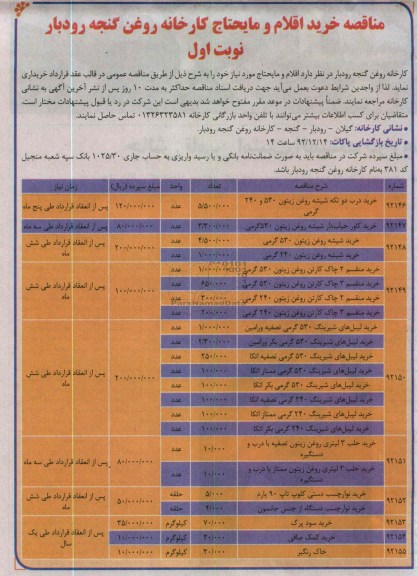 مناقصه خرید اقلام و مایحتاج کارخانه روغن گنجه رودبار
نوبت اول
کارخانه روغن گنجه رودبار در نظر دارد اقلام و مایحتاج مورد نیاز خود را به شرح ذیل از طریق مناقصه عمومی در قالب عقد قرارداد خریداری
نماید. لذا از واجدین شرایط دعوت بعمل می‌آید جهت دریافت اسناد مناقصه حداکثر به مدت ۱۰ روز پس از نشر آخرین آگهی به نشانی
کارخانه مراجعه نمایند. ضمناً پیشنهادات در موعد مقرر مفتوح خواهد شد بدیهی است این شرکت در رد یا قبول پیشنهادات مختار است.
متقاضیان برای کسب اطلاعات بیشتر می‌توانند با تلفن واحد بازرگانی کارخانه ۰۱۳۲۶۲۲۳۵۸۱ تماس حاصل نمایند.
• نشانی کارخانه: گیلان - رودبار - گنجه - کارخانه روغن گنجه رودبار.
• تاریخ بازگشایی پاکات: ۹۲/۱۲/۱۴ ساعت ۱۴
• مبلغ سپرده شرکت در مناقصه باید به صورت ضمانتنامه بانکی و یا رسید واریزی به حساب جاری ۱۰۲۵/۳۰ بانک سپه شعبه منجیل
کد ۳۸۱ به‌نام کارخانه روغن گنجه رودبار باشد.
شماره شرح مناقصه تعداد واحد مبلغ سپرده (ریال) زمان نیاز
۹۲۱۴۶ خرید درب دو تکه شیشه روغن زیتون ۵۳۰ و ۲۴۰ گرمی ۵/۵۰۰/۰۰۰ عدد ۱۲۰/۰۰۰/۰۰۰ پس از انعقاد قرارداد طی پنج ماه
۹۲۱۴۷ خرید کاور حبابدار شیشه روغن زیتون ۵۳۰گرمی ۳/۳۰۰/۰۰۰ عدد ۸۰/۰۰۰/۰۰۰ پس از انعقاد قرارداد طی سه ماه
۹۲۱۴۸ خرید شیشه روغن زیتون ۵۳۰ گرمی ۴/۵۰۰/۰۰۰ عدد ۲۰۰/۰۰۰/۰۰۰ پس از انعقاد قرارداد طی شش ماه
خرید شیشه روغن زیتون ۲۴۰ گرمی ۱/۰۰۰/۰۰۰ عدد
۹۲۱۴۹ خرید منقسم ۲ چاک کارتن روغن زیتون ۵۳۰ گرمی ۱/۰۰۰/۰۰۰ عدد ۱۰۰/۰۰۰/۰۰۰ پس از انعقاد قرارداد طی شش ماه
خرید منقسم ۳ چاک کارتن روغن زیتون ۵۳۰ گرمی ۶۵۰/۰۰۰ عدد
خرید منقسم ۲ چاک کارتن روغن زیتون ۲۴۰ گرمی ۳۰۰/۰۰۰ عدد
خرید منقسم ۳ چاک کارتن روغن زیتون ۲۴۰ گرمی ۲۰۰/۰۰۰ عدد
۹۲۱۵۰ خرید لیبل‌های شیرینگ ۵۳۰ گرمی تصفیه ورامین ۱/۰۰۰/۰۰۰ عدد ۲۰۰/۰۰۰/۰۰۰ پس از انعقاد قرارداد طی شش ماه
خرید لیبل‌های شیرینگ ۵۳۰ گرمی بکر ورامین ۲/۳۰۰/۰۰۰ عدد
خرید لیبل‌های شیرینگ ۵۳۰ گرمی تصفیه اتکا ۲۵۰/۰۰۰ عدد
خرید لیبل‌های شیرینگ ۵۳۰ گرمی ممتاز اتکا ۱۰۰/۰۰۰ عدد
خرید لیبل‌های شیرینگ ۵۳۰ گرمی بکر اتکا ۱۰۰/۰۰۰ عدد
خرید لیبل‌های شیرینگ ۲۴۰ گرمی تصفیه اتکا ۱۰۰/۰۰۰ عدد
خرید لیبل‌های شیرینگ ۲۴۰ گرمی ممتاز اتکا ۱۰۰/۰۰۰ عدد
خرید لیبل‌های شیرینگ ۲۴۰ گرمی بکر اتکا ۱۰۰/۰۰۰ عدد
۹۲۱۵۱ خرید حلب ۳ لیتری روغن زیتون تصفیه با درب و دستگیره ۱۰/۰۰۰ عدد ۸۰/۰۰۰/۰۰۰ پس از انعقاد قرارداد طی سه ماه
خرید حلب ۳ لیتری روغن زیتون ممتاز با درب و دستگیره ۱۰/۰۰۰ عدد
۹۲۱۵۲ خرید نوارچسب دستی کلوپ تاپ ۹۰ یارد ۵/۰۰۰ حلقه ۵۰/۰۰۰/۰۰۰ پس از انعقاد قرارداد طی شش ماه
خرید نوارچسب دستگاه از جنس جانسون ۴/۰۰۰ حلقه
۹۲۱۵۳ خرید سود پرک ۷۰/۰۰۰ کیلوگرم ۳۵/۰۰۰/۰۰۰ پس از انعقاد قرارداد طی یک سال
۹۲۱۵۴ خرید کمک صافی ۲۰/۰۰۰ کیلوگرم ۱۰/۰۰۰/۰۰۰
۹۲۱۵۵ خاک رنگبر ۳۰/۰۰۰ کیلوگرم ۱۰/۰۰۰/۰۰۰